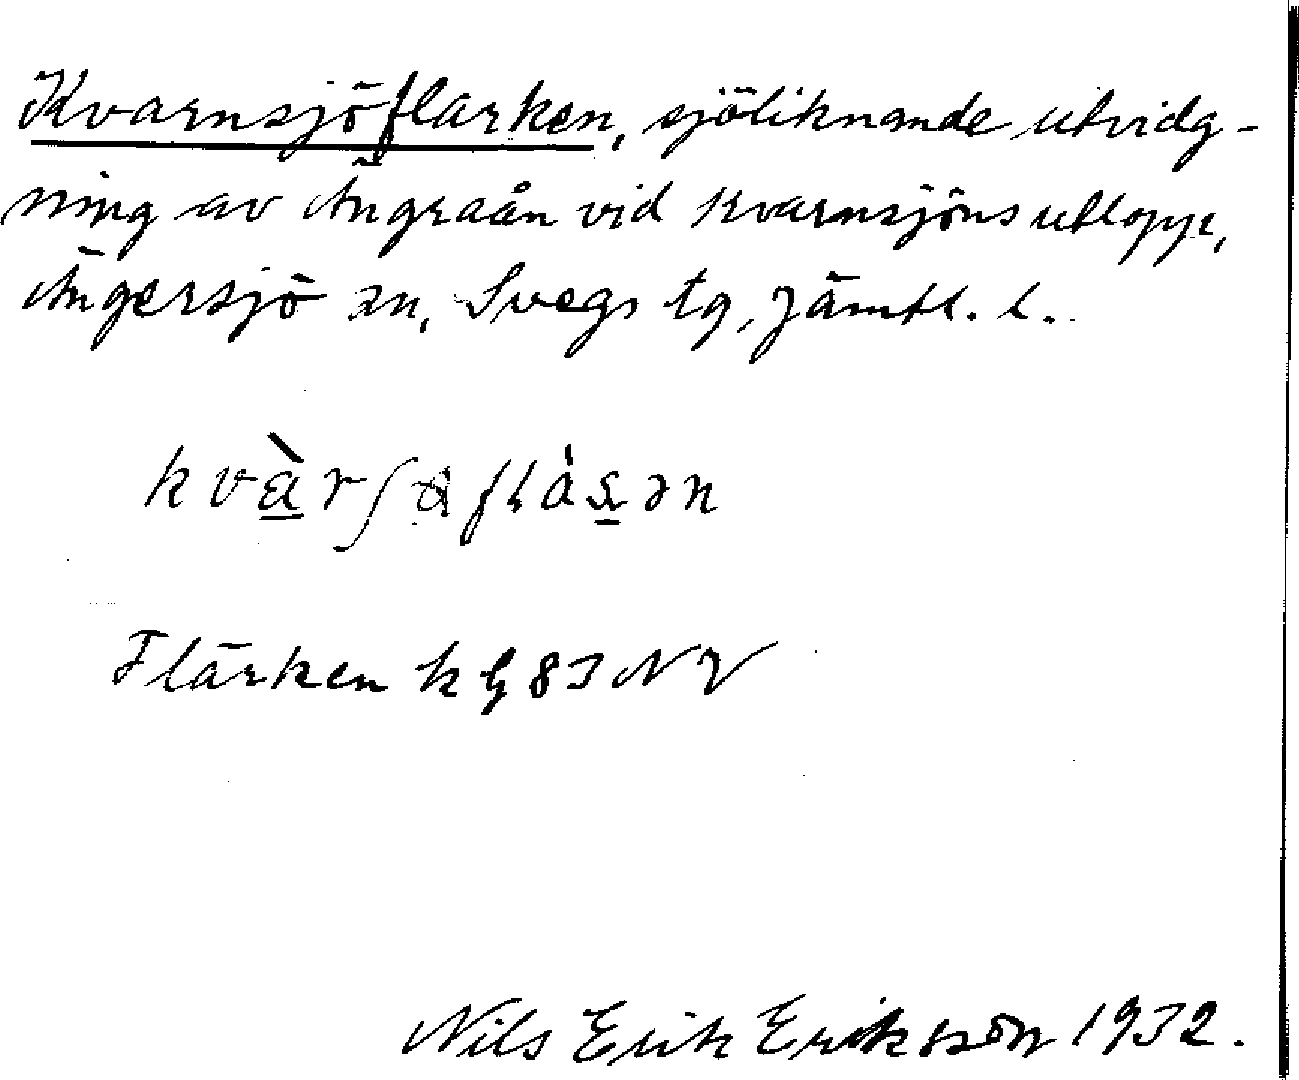 Kvarnsjöflarken, sjöliknande utvidg-
ning av Ängraån vid Kvarnsjöns utlopp,
Ängersjö sn, Svegs tg, Jämtl. l.
Flärken k bl 83 NV
Nils Erik Eriksson 1932.